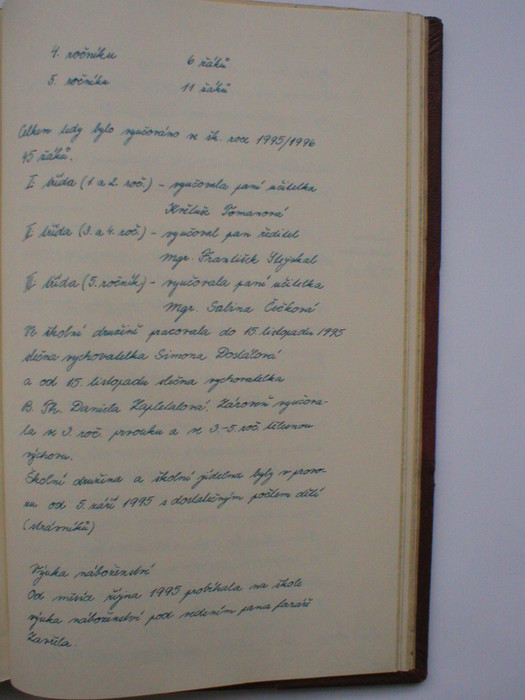 4. ročníku 6 žáků
5. ročníku 11 žáků
Celkem tedy bylo vyučováno ve šk. roce 1995/1996
45 žáků.
I. třída (1. a 2. roč.) - vyučovala paní učitelka
Květuše Tomanová
II. třída (3. a 4. roč.) - vyučoval pan ředitel
Mgr. František Stejskal
III. třída (5. ročník) - vyučovala paní učitelka
Mgr. Sabina Čičková
Ve školní družině pracovala do 15. listopadu 1995
slečna vychovatelka Simona Dostálová
a od 15. listopadu slečna vychovatelka
B. Th. Daniela Zapletalová. Zároveň vyučova-
la ve 3. roč. prvouku a ve 3.-5. roč. tělesnou
výchovu.
Školní družina a školní jídelna byly v provo-
zu od 5. září 1995 s dostatečným počtem dětí
(strávníků)
Výuka náboženství
Od měsíce října 1995 probíhala na škole
výuka náboženství pod vedením pana faráře